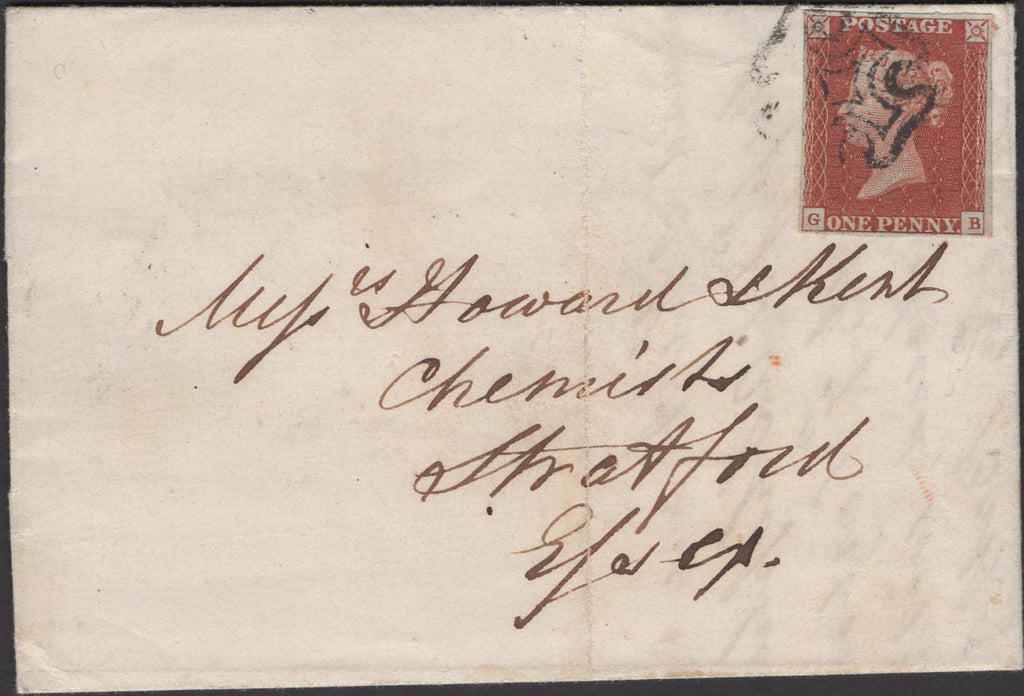 POSTAGE
G ONE PENNY. B
Mess<sup>rs</sup> Howard & Kent
Chemists
Stratford
Essex.